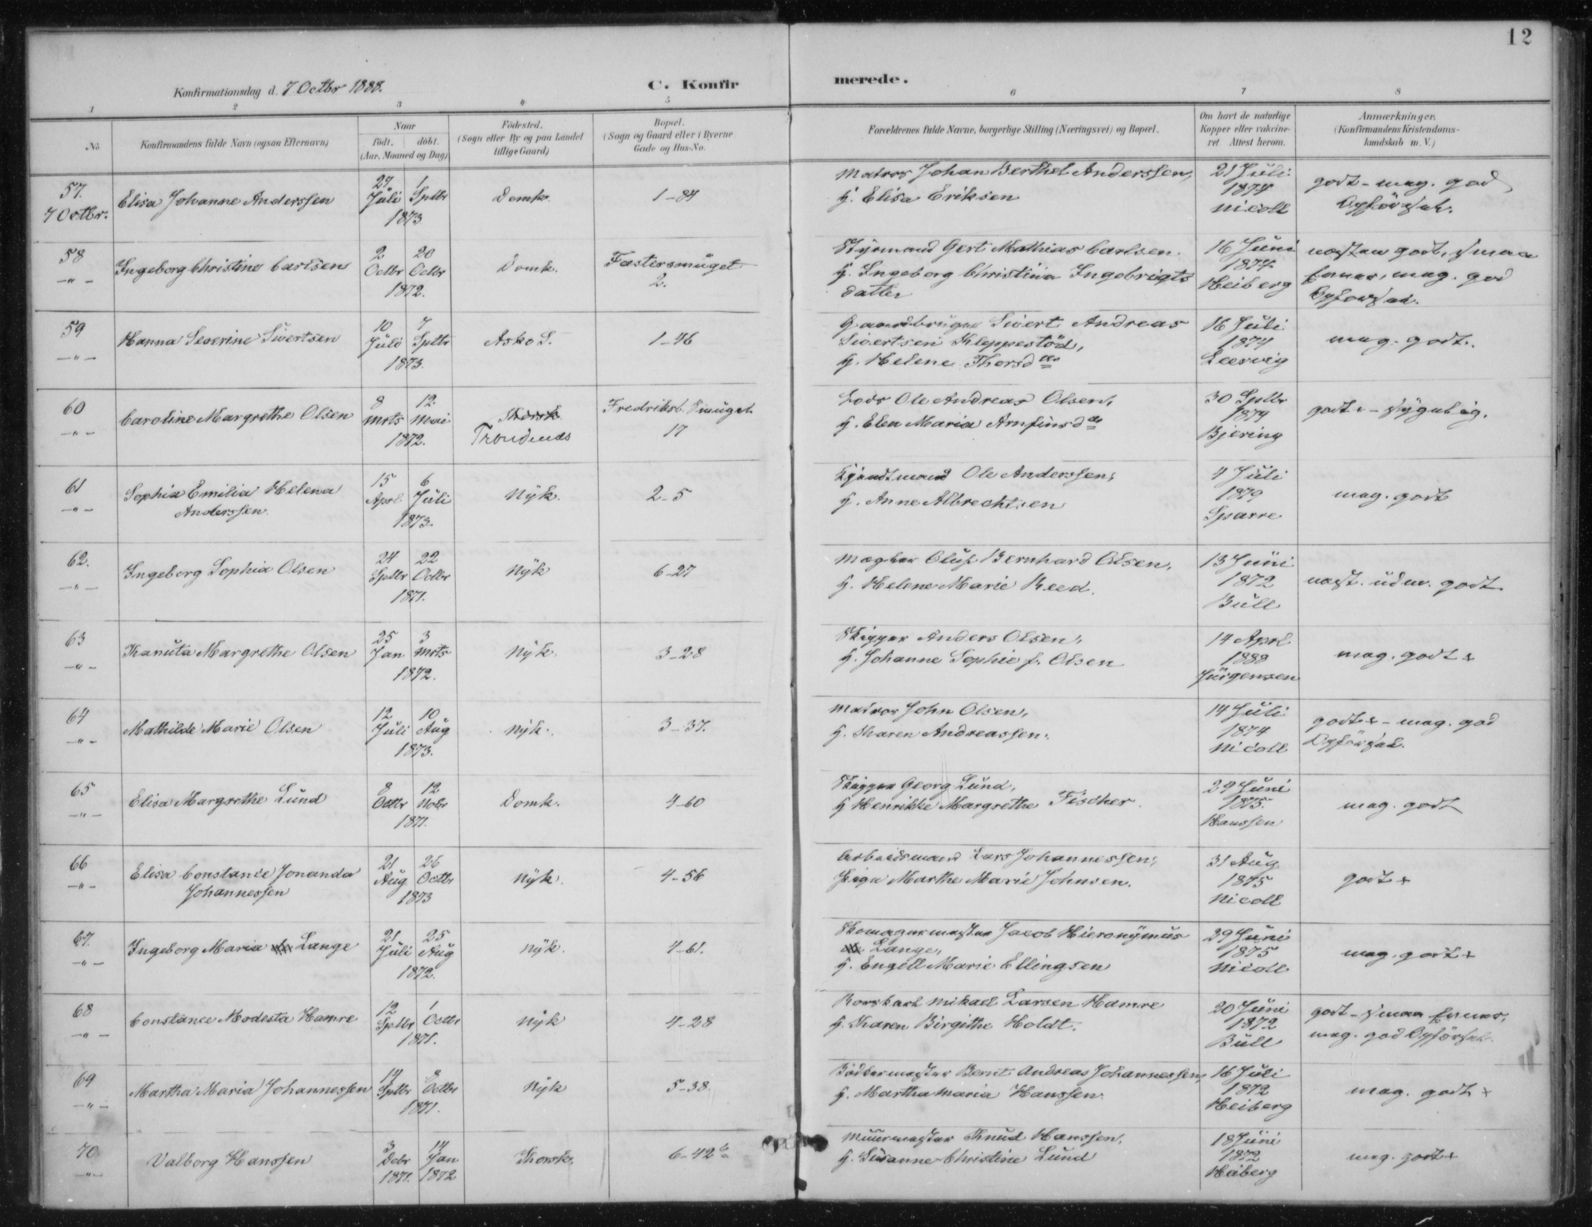 12
Konfirmationsdag d. 7 Octbr 1888.
C. Konfirmerede.
1 2 3 4 5 6 7 8
No
Konfirmandens fulde Navn (ogsaa Efternavn)
Naar
født. døbt.
(Aar, Maaned og Dag)
Fødested.
(Sogn eller By og paa Landet tillige Gaard)
Bopæl.
(Sogn og Gaard eller i Byerne Gade og Hus-No.
Forældrenes fulde Navne, borgerlige Stilling (Næringsvei) og Bopæl.
Om havt de naturlige Kopper eller vaccineret Attest herom.
Anmærkninger.
(Konfirmandens Kristendomskundskab m. V.)
57. 7 Octbr. Elisa Johanne Anderssen 27 Juli 1 Sptbr 1873 Domk. 1-84
Matros Johan Berthel Anderssen,
H. Elisa Eriksen
21 Juli 1874 Nicoll
godt - mag. god Opførsel.
58 -"- Ingeborg Christine Carlsen 2 Octbr 20 Octbr 1872. Domk. Fæstersmuget 2.
Styrmand Gert Mathias Carlsen.
H. Ingeborg Christina Ingebrigts
datter
16 Juni 1874 Heiberg
næsten godt, smaa Evner, mag. god Opførsel.
59 -"- Hanna Severine Sivertsen 10 Juli 7 Sptbr 1873. Askø S. 1-46
Gaardbruger Sivert Andreas
Sivertsen Kleppestöd,
H. Helene Thorsd
16 Juli 1874 Leervig
mag. godt.
60 -"- Caroline Margrethe Olsen 8 Mrts 12 Mai 1872. Trondenæs Fredriksb. Smuget 17
Lods Ole Andreas Olsen,
H. Elen Maria Arnfinsd
30 Sptbr 1874 Bjering
godt - sygelig.
61 -"- Sophia Emilia Helena Anderssen 15 Apr. 6 Juli 1873. Nyk. 2-5
Ole Anderssen,
H. Anne Albrechtsen
4 Juli 1879 Sparre
mag. godt
62. -"- Ingeborg Sophia Olsen 24 Sptbr 22 Octbr 1871. Nyk 6-27
Mægler Oluf Bernhard Olsen,
H. Helene Marie Reed.
13 Juni 1872 Bull
næst. udm. godt
63 -"- Kanuta Margrethe Olsen 25 Jan 3 Mrts 1872. Nyk. 3-28
Skipper Anders Olsen,
H. Johanne Sophie f. Olsen
14 Aprl 1888 Jürgensen
mag. godt +
64 -"- Mathilde Marie Olsen 12 Juli 10 Aug 1873. Nyk. 3-37.
Matros John Olsen,
H. Karen Andreassen.
14 Juli 1874 Nicoll
godt + - mag. god Opførsel.
65 -"- Elisa Margrethe Lund 8 Octbr 12 Nobr 1871. Domk. 4-60
Skipper Georg Lund,
H. Henrikke Margrethe Fischer.
29 Juni 1875. Hanssen
mag. godt
66 -"- Elisa Constance Jonanda Johannessen 21 Aug 26 Octbr 1873 Nyk. 4-56
Arbeidsmand Lars Johannessen,
Pige Marthe Marie Johnsen.
31 Aug 1875 Nicoll
godt +
67. -"- Ingeborg Maria Lange 21 Juli 25 Aug 1872. Nyk. 4-61.
Skomagermester Jacob Hieronymus
Lange,
H. Engell Marie Ellingsen
29 Juni 1875 Nicoll
mag. godt +
68 -"- Constance Modesta Hamre 12 Sptbr 1 Octbr 1871. Nyk 4-28
Mikael Larsen Hamre
H. Karen Birgithe Holdt.
20 Juni 1872 Bull
godt - smaa Evner, mag. god Opførsel.
69 -"- Martha Maria Johannessen 14 Sptbr 8 Octbr 1871. Nyk 5-38.
Bødkermester Bernt Andreas Johannessen,
H. Martha Maria Hanssen.
16 Juli 1872 Heiberg
mag. godt +
70 -"- Valborg Hanssen 3 Debr 1871. 14 Jan 1872 Korsk. 6-42
Muurmester Knud Hanssen,
H. Susanne Christine Lund
18 Juni 1872 Heiberg
mag. godt +